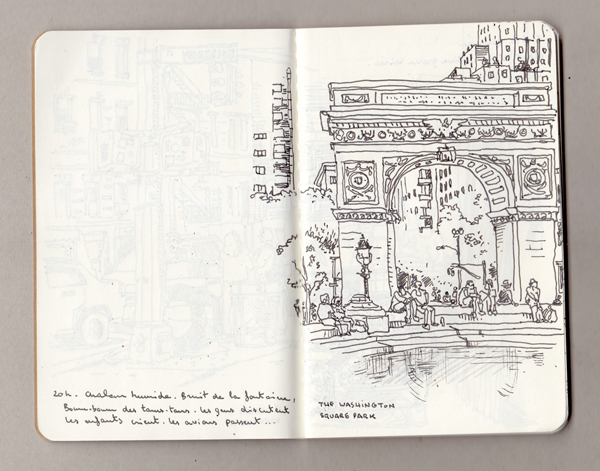 20h. Chaleur humide. Bruit de la fontaine,
Boum-boum des tams-tams. les gens discutent
les enfants crient. les avions passent...
THE WASHINGTON
SQUARE PARK